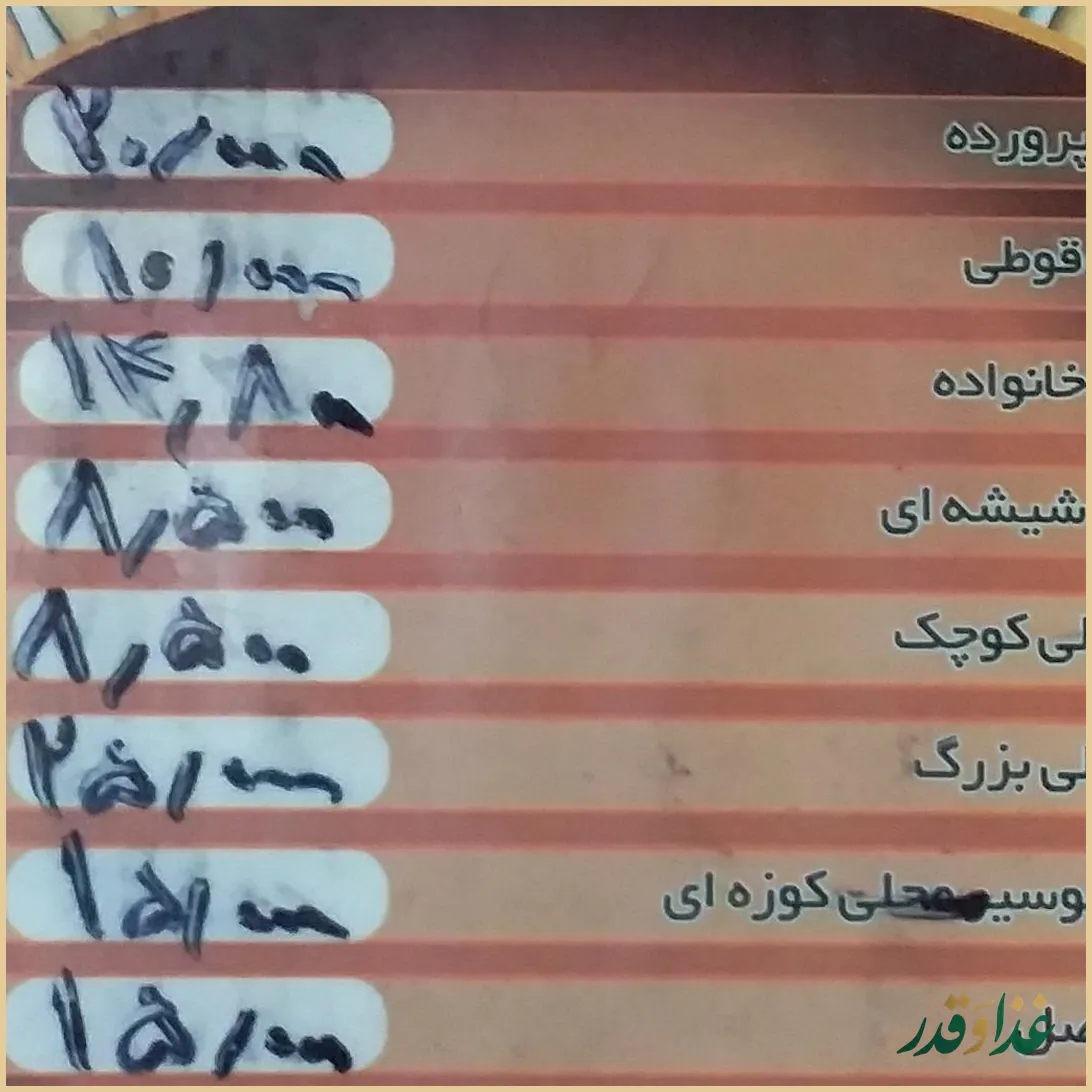 پرورده ۲۰/۰۰۰
قوطی ۱۰/۰۰۰
خانواده ۱۴,۸۰۰
شیشه ای ۸,۵۰۰
لی کوچک ۸,۵۰۰
لی بزرگ ۲۵/۰۰۰
وسیر محلی کوزه ای ۱۵/۰۰۰
۱۵/۰۰۰
غذا و قدر